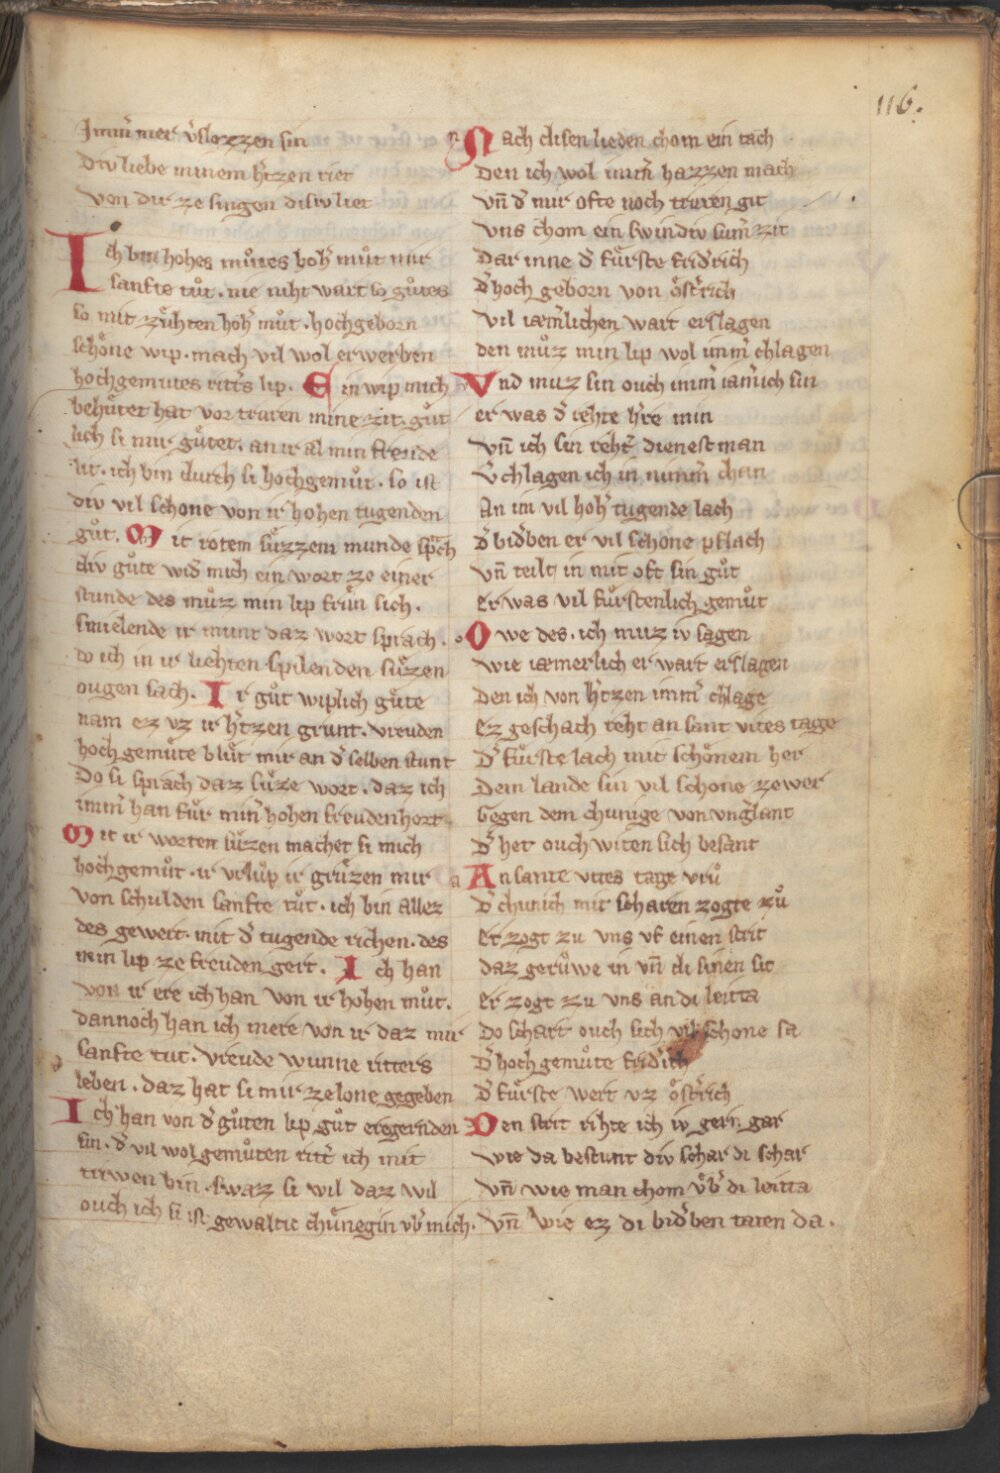 116.
Im̄ mer v̓slozzen sin
Div liebe minem h̓tzen riet
von dir ze singen disiv liet
Ich bin hohes můtes hoh̓ můt mir
sanfte tůt. nie niht wart so gůtes
so mit zůhten hoh̓ můt. hochgeborn
schöne wip. mach vil wol erwerben
hochgemutes ritt̓s lip. Ein wip mich
behůtet hat vor truren mine zit. gůt
lich si mir gůtet. an ir al min freude
lit. ich bin durch si hochgemůt. so ist
div vil schone von ir hohen tugenden
gůt. Mit rotem sůzzem munde sp̃ch
div gůte wid̓ mich ein wort ze einer
stunde des můz min lip frůn sich.
smielende ir munt daz wort sprach.
do ich in ir liehten spilenden sůzen
ougen sach. Ir gůt wiplich gůte
nam ez vz ir h̓tzen grunt. vreuden
hoch gemůte blůt mir an d̓ selben stunt
Do si sprach daz sůze wort. daz ich
imm̓ han fůr min̓ hohen freuden hort
Mit ir worten sůzzen machet si mich
hochgemůt. ir vrlůp ir grůzen mir
von schulden sanfte tůt. ich bin allez
des gewert. mit d̓ tugende richen. des
min lip ze freuden gert. Ich han
von ir ere ich han von ir hohen můt.
dannoch han ich mere von ir daz mir
sanfte tut. vreude wunne ritters
leben. daz hat si mir ze lone gegeben
Ich han von d̓ gůten lip gůt ere gernden
sin. d̓ vil wol gemůten ritt̓ ich mit
triwen bin. swaz si wil daz wil
ouch ich si ist gewaltic chůnegin vb̓ mich.
n Nach disen lieden chom ein tach
Den ich wol imm̓ hazzen mach
vn̄ d̓ mir ofte noch truren git
vns chom ein swindiv sum̓ zit
Dar inne d̓ fůrste fridrich
d̓ hoch geborn von öst̓rich
vil iæm̓lichen wart erslagen
den můz min lip wol imm̓ chlagen
Vnd muz sin ouch imm̓ iam̓ich sin
er was d̓ rehte h̓re min
vn̄ ich sin reht̓ dienestman
v̓chlagen ich in nimm̓ chan
An im vil hoh̓ tugende lach
d̓ bid̓ben er vil schone pflach
vn̄ teilt in mit oft sin gůt
er was vil fůrstenlich gemůt
o Owe des. ich muz iv sagen
wie iæmerlich er wart erslagen
Den ich von h̓tzen imm̓ chlage
Ez geschach reht an sant vites tage
D̓ fůrste lach mit schönem her
Dem lande sin vil schone ze wer
Gegen dem chunige von vng̓lant
D̓ her ouch witen sich besant
a An sante vites tage vrů
d̓ chunich mit scharen zogte zů
Er zogt zu vns vf einen strit
daz gerůwe in vn̄ di sinen sit
Er zogt zu vns an di leitta
Do schart ouch sich vil schone sa
D̓ hoch gemůte frid̓ich
d̓ fůrste wert vz öst̓rich
Den strit rihte ich iv gern gar
wie da bestunt div schar di schar
vn̄ wie man chom v̊b̓ di leitta
vn̄ wie ez di bid̓ben taten da.